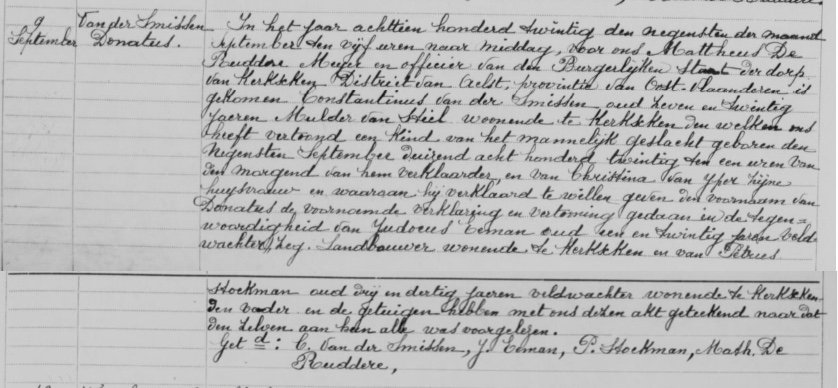 9 September
Van der Smissen Donatus.
In het jaar achttien honderd twintig den negensten der maand
september ten vijf uren naar middag, voor ons Mattheus De
Ruddere Meyer en officier van den Burgerlijken Staat der dorp
van Kerkseken District van Aelst, provintie van Oost-Vlaanderen is
gekomen Constantinus van der Smissen oud zeven en twintig
Jaeren Mulder van Stiel woonende te Kerkseken den welken ons
heeft vertoond een Kind van het mannelijk geslacht geboren den
Negensten September duizend acht honderd twintig ten een uren van
den morgend van hem verklaarder en van Christina van Yper zijne
huysvrouw en waaraan hij verklaard te willen geven den voornaam van
Donatus de voornamde verklaring en vertooning gedaan in de tegen=
woordigheid van Judocus Eeman oud een en twintig jaren veld-
wachter, zeg. Landbouwer wonende te Kerkseken en van Petrus
Stockman oud drij en dertig jaeren veldwachter wonende te Kerkseken
den vader en de getuigen hebben met ons dezen akt geteekend naar dat
den zelven aan hun alle was voorgelezen.
Get d: C. Van der Smissen, J. Eeman, P. Stockman, Math. De
Ruddere,